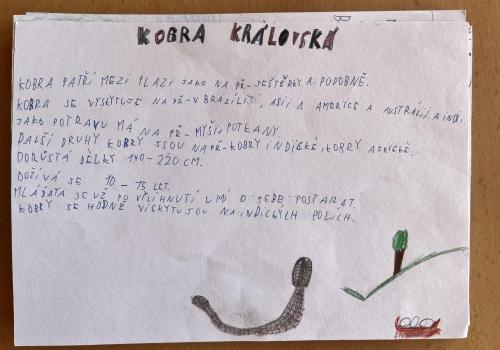 KOBRA KRÁLOVSKÁ
KOBRA PATŘÍ MEZI PLAZI JAKO NAPŘ-JEŠTĚRKY A PODOBNĚ.
KOBRA SE VYSKYTUJE NAPŘ-V BRAZÍLII, ASII A AMERICE A AUSTRALII A INDII.
JAKO POTRAVU MÁ NAPŘ-MYŠI, POTKANY.
DALŠÍ DRUHY KOBRY JSOU NAPŘ-KOBRY INDICKÉ, KOBRY AFRICKÉ.
DORŮSTÁ DÉLKY 140-220 CM.
DOŽÍVÁ SE 10 - 15 LET.
MLÁĎATA SE UŽ PO VYLÍHNUTÍ UMÍ O SEBE POSTARAT.
KOBRY SE HODNĚ VISKYTUJOU NA INDICKÝCH POLÍCH.